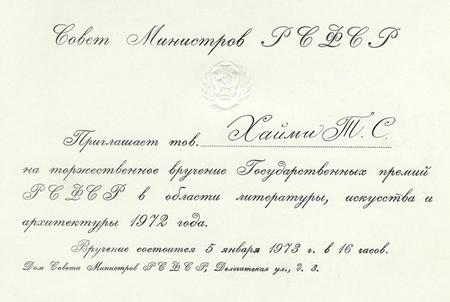 Совет Министров РСФСР
Приглашает тов. Хайми Т. С.
на торжественное вручение Государственных премий
РСФСР в области литературы, искусства и
архитектуры 1972 года.
Вручение состоится 5 января 1973 г. в 16 часов.
Дом Совета Министров РСФСР, Делегатская ул., д. 3.